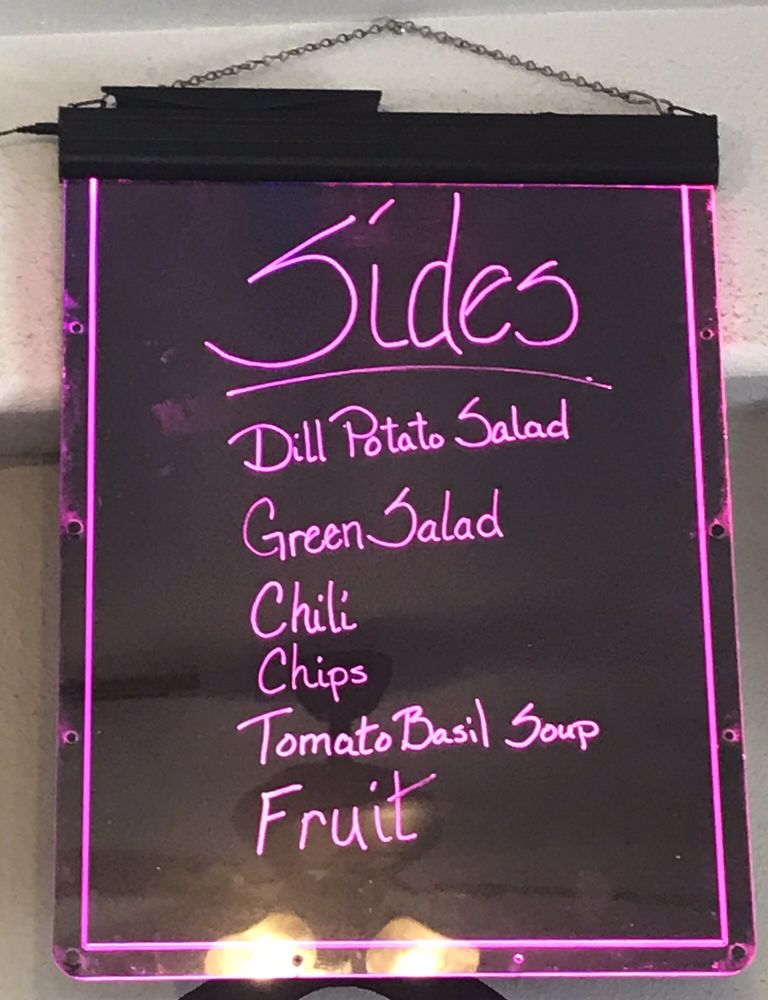 Sides
Dill Potato Salad
Green Salad
Chili
Chips
Tomato Basil Soup
Fruit